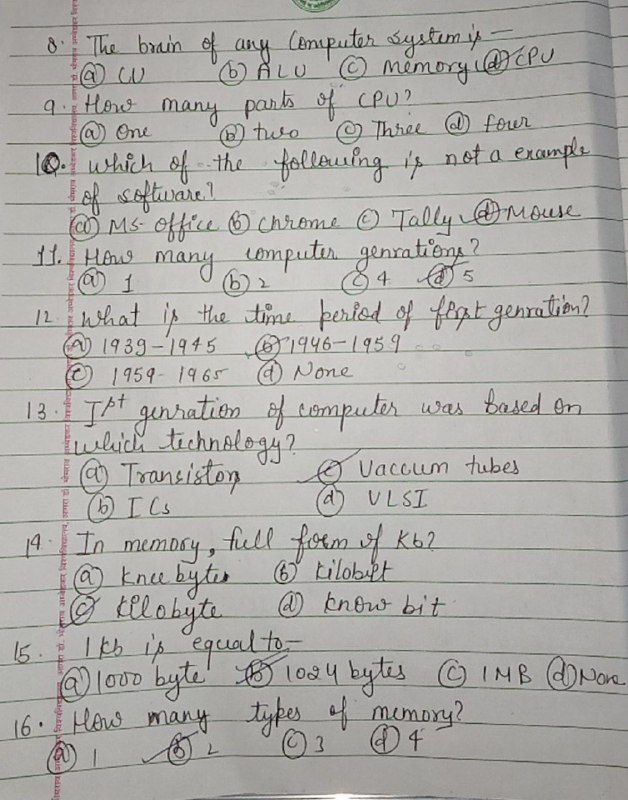 8. The brain of any Computer system is -
(a) CU (b) ALU (c) memory (d) CPU
9. How many parts of CPU?
(a) One (b) two (c) Three (d) four
10. which of the following is not a example
of software?
(a) MS-office (b) chrome (c) Tally (d) Mouse
11. How many computer genrations?
(a) 1 (b) 2 (c) 4 (d) 5
12. What is the time period of first genration?
(a) 1939-1945 (b) 1946-1959
(c) 1959-1965 (d) None
13. Ist genration of computer was based on
which technology?
(a) Transistors (c) Vaccum tubes
(b) ICs (d) VLSI
14. In memory, full form of Kb?
(a) knee bytes (b) kilobyt
(c) kilobyte (d) know bit
15. 1 kb is equal to -
(a) 1000 byte (b) 1024 bytes (c) 1MB (d) None
16. How many types of memory?
(a) 1 (b) 2 (c) 3 (d) 4